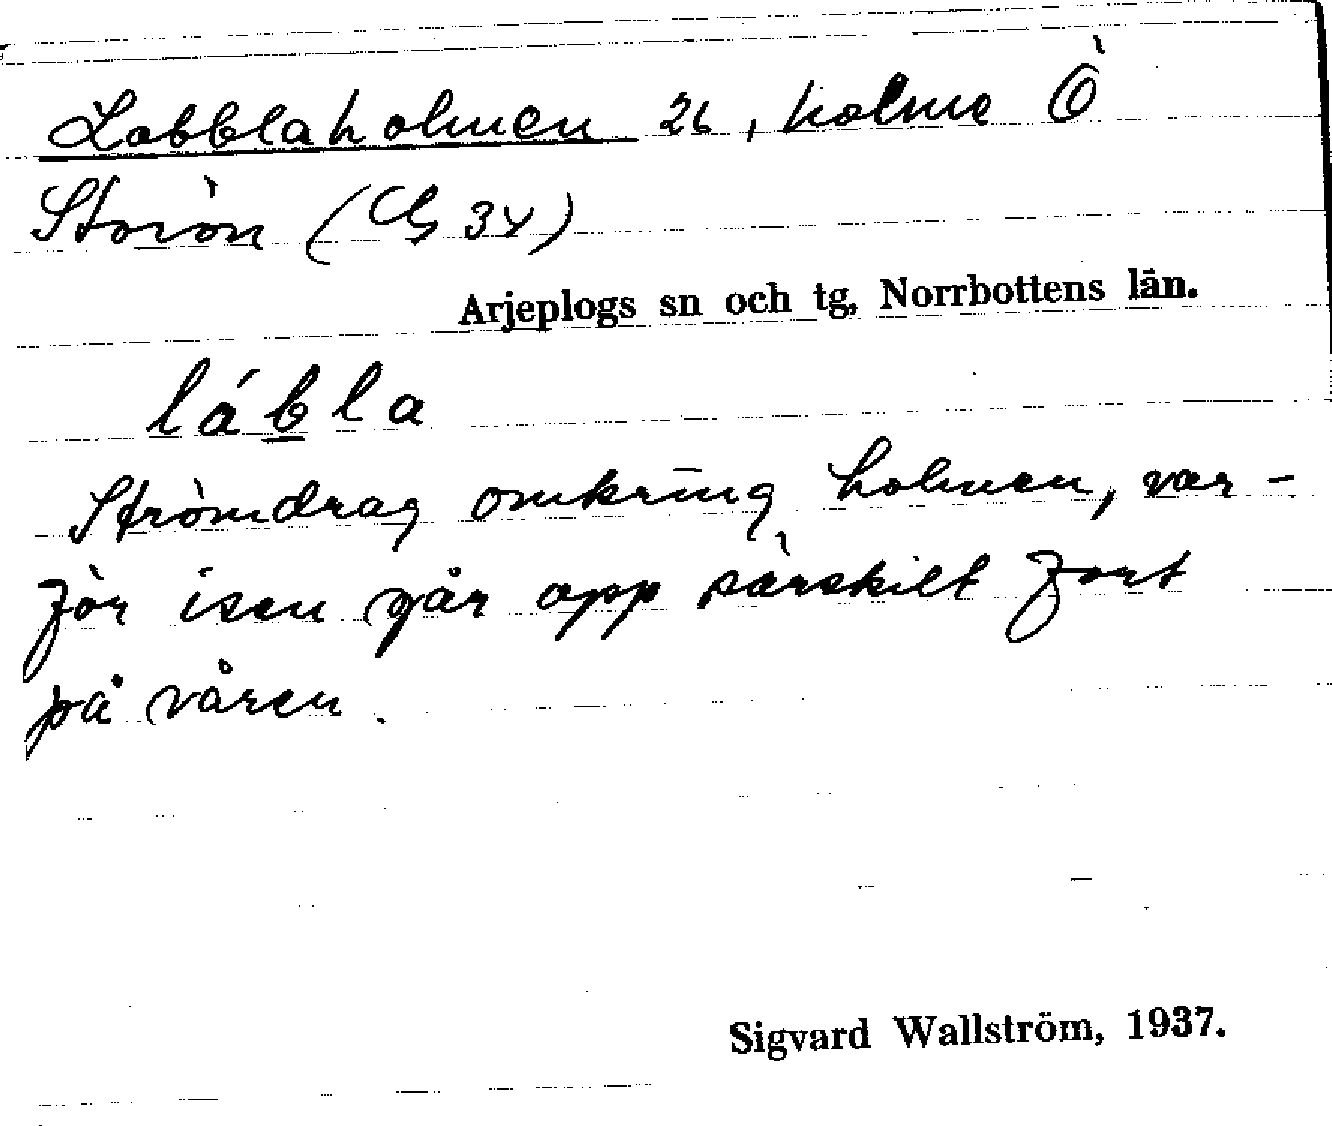 Labblaholmen 26, holme Ö
Storön (G 34)
Arjeplogs sn och tg, Norrbottens län.
lábla
Strömdrag omkring holmen, var-
för isen går opp särskilt fort
på våren.
Sigvard Wallström, 1937.